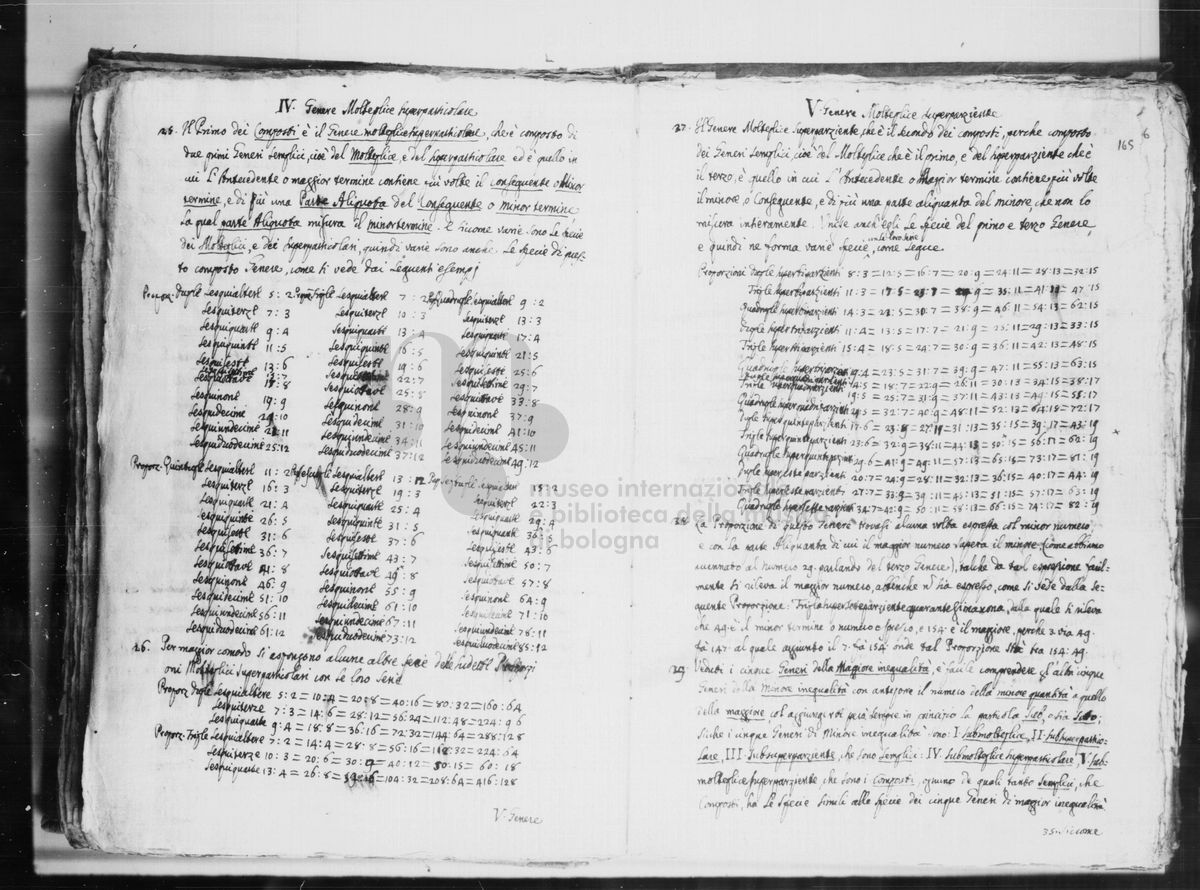 IV. Genere Molteplice superparticolare
25. Il Primo dei Composti è il Genere molteplice superparticolare, che è composto di
due primi Generi semplici, cioè del Molteplice, e del superparticolare ed è quello in
cui l'Antecedente o maggior termine contiene più volte il conseguente o Minor
termine, e di più una Parte Aliquota del Conseguente o minor termine,
la qual parte Aliquota misura il minor termine. E siccome varie sono le specie
dei Molteplici, e dei superparticolari, quindi varie sono anche le specie di ques-
to composto Genere, come si vede dai seguenti esempj
Proporz: Duple sesquialtere 5 : 2 Propor Triple sesquialtere 7 : 2 Prop Quadruple sesquialtere 9 : 2
sesquiterze 7 : 3 sesquiterze 10 : 3 sesquiterze 13 : 3
sesquiquarte 9 : 4 sesquiquarte 13 : 4 sesquiquarte 17 : 4
sesquiquinte 11 : 5 sesquiquinte 16 : 5 sesquiquinte 21 : 5
sesquiseste 13 : 6 sesquiseste 19 : 6 sesquiseste 25 : 6
sesquiottave 17 : 8 22 : 7 sesquisettime 29 : 7
sesquiottave 25 : 8 sesquiottave 33 : 8
sesquinone 19 : 9 sesquinone 28 : 9 sesquinone 37 : 9
sesquidecime 21 : 10 sesquidecime 31 : 10 sesquidecime 41 : 10
sesquiundecime 23 : 11 sesquiundecime 34 : 11 sesquiundecime 45 : 11
sesquiduodecime 25 : 12 sesquiduodecime 37 : 12 sesquiduodecime 49 : 12
Proporz: Quintuple sesquialtere 11 : 2 sesquialtere 13 : 2 sesquialtere 15 : 2
sesquiterze 16 : 3 sesquiterze 19 : 3 sesquiterze 22 : 3
sesquiquarte 21 : 4 sesquiquarte 25 : 4 sesquiquarte 29 : 4
sesquiquinte 26 : 5 sesquiquinte 31 : 5 sesquiquinte 36 : 5
sesquiseste 31 : 6 sesquiseste 37 : 6 sesquiseste 43 : 6
sesquisettime 36 : 7 sesquisettime 43 : 7 sesquisettime 50 : 7
sesquiottave 41 : 8 sesquiottave 49 : 8 sesquiottave 57 : 8
sesquinone 46 : 9 sesquinone 55 : 9 sesquinone 64 : 9
sesquidecime 51 : 10 sesquidecime 61 : 10 sesquidecime 71 : 10
sesquiundecime 56 : 11 sesquiundecime 67 : 11 sesquiundecime 78 : 11
sesquiduodecime 61 : 12 sesquiduodecime 73 : 12 sesquiduodecime 85 : 12
26. Per maggior comodo si espongono alcune altre serie delle sudette Proporzi
oni Molteplici superparticolari con le loro serie
Proporz Duple sesquialtere 5 : 2 = 10 : 4 = 20 : 8 = 40 : 16 = 80 : 32 = 160 : 64
sesquiterze 7 : 3 = 14 : 6 = 28 : 12 = 56 : 24 = 112 : 48 = 224 : 96
sesquiquarte 9 : 4 = 18 : 8 = 36 : 16 = 72 : 32 = 144 : 64 = 288 : 128
Proporz: Triple sesquialtere 7 : 2 = 14 : 4 = 28 : 8 = 56 : 16 = 112 : 32 = 224 : 64
sesquiterze 10 : 3 = 20 : 6 = 30 : 9 = 40 : 12 = 50 : 15 = 60 : 18
sesquiquarte 13 : 4 = 26 : 8 = 52 : 16 = 104 : 32 = 208 : 64 = 416 : 128
V. Genere
165
V. Genere Molteplice superparziente
27. Il Genere Molteplice superparziente, che è il secondo dei composti, perche composto
dei Generi semplici, cioè del Molteplice che è il primo, e del superparziente che è
il terzo, è quello in cui l'Antecedente o Maggior termine contiene più volte
il minore, o Conseguente, e di più una parte aliquanta del minore, che non lo
misura interamente. Unisce anch'egli le specie del primo e terzo Genere
e quindi ne forma varie specie, come segue
Proporzioni Duple superbiparzienti 8 : 3 = 12 : 5 = 16 : 7 = 20 : 9 = 24 : 11 = 28 : 13 = 32 : 15
Triple superbiparzienti 11 : 3 = 17 : 5 = 23 : 7 = 29 : 9 = 35 : 11 = 41 : 13 = 47 : 15
Quadruple superbiparzienti 14 : 3 = 22 : 5 = 30 : 7 = 38 : 9 = 46 : 11 = 54 : 13 = 62 : 15
Duple supertriparzienti 11 : 4 = 13 : 5 = 17 : 7 = 21 : 9 = 25 : 11 = 29 : 13 = 33 : 15
Triple supertriparzienti 15 : 4 = 18 : 5 = 24 : 7 = 30 : 9 = 36 : 11 = 42 : 13 = 48 : 15
Quadruple 19 : 4 = 23 : 5 = 31 : 7 = 39 : 9 = 47 : 11 = 55 : 13 = 63 : 15
14 : 5 = 18 : 7 = 22 : 9 = 26 : 11 = 30 : 13 = 34 : 15 = 38 : 17
Triple 19 : 5 = 25 : 7 = 31 : 9 = 37 : 11 = 43 : 13 = 49 : 15 = 55 : 17
Quadruple 24 : 5 = 32 : 7 = 40 : 9 = 48 : 11 = 52 : 13 = 64 : 15 = 72 : 17
Duple superquinqueparzienti 17 : 6 = 23 : 9 = 27 : 11 = 31 : 13 = 35 : 15 = 39 : 17 = 43 : 19
Triple 23 : 6 = 32 : 9 = 38 : 11 = 44 : 13 = 50 : 15 = 56 : 17 = 62 : 19
Quadruple 29 : 6 = 41 : 9 = 49 : 11 = 57 : 13 = 65 : 15 = 73 : 17 = 81 : 19
Duple supersesparzienti 20 : 7 = 24 : 9 = 28 : 11 = 32 : 13 = 36 : 15 = 40 : 17 = 44 : 19
Triple 27 : 7 = 33 : 9 = 39 : 11 = 45 : 13 = 51 : 15 = 57 : 17 = 63 : 19
Quadruple 34 : 7 = 42 : 9 = 50 : 11 = 58 : 13 = 66 : 15 = 74 : 17 = 82 : 19
28. La Proporzione di questo Genere trovasi alcuna volta espressa col minor numero
e con la parte Aliquanta di cui il maggior numero supera il minore (come abbiamo
accennato al numero 29. parlando del terzo Genere), talche da tal espressione facil-
mente si rileva il maggior numero, abbenche non sia espresso, come si vede dalla se-
quente Proporzione: Tripla supersetteparziente quarantesimanona, dalla quale si rileva
che 49. è il minor termine o numero espresso, e 154. è il maggiore, perche 3. via 49.
fa 147. al quale aggiunto il 7. fa 154. onde tal Proporzione sta tra 154 : 49.
29. Veduti i cinque Generi della Maggiore inequalità, è facile comprendere gl'altri cinque
Generi della Minore inequalità con anteporre il numero della minore quantità a quello
della maggiore col aggiungervi però sempre in principio la particola Sub, o sia Sotto;
sicche i cinque Generi di Minore inequalità sono: I. submolteplice, II. subsuperpartico-
lare, III. subsuperparziente, che sono semplici: IV. submolteplice superparticolare, V. sub-
molteplice superparziente, che sono i Composti, ognuno de quali, tanto semplici, che
Composti, ha le specie simili alle specie dei cinque Generi di maggior inequalità
35. Siccome
museo internazionale
e biblioteca della musica
di bologna